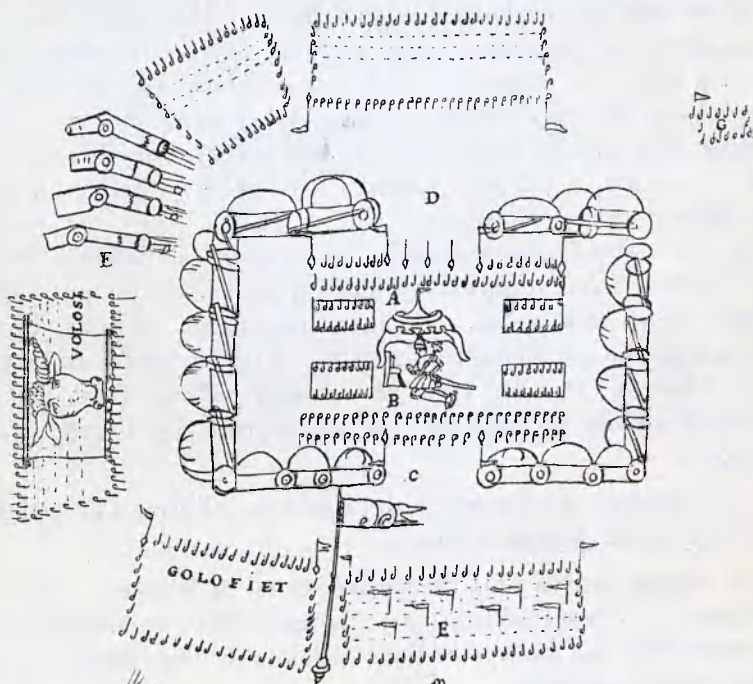 G
D
F
VOLOSI
A
B
C
GOLOFIET
E